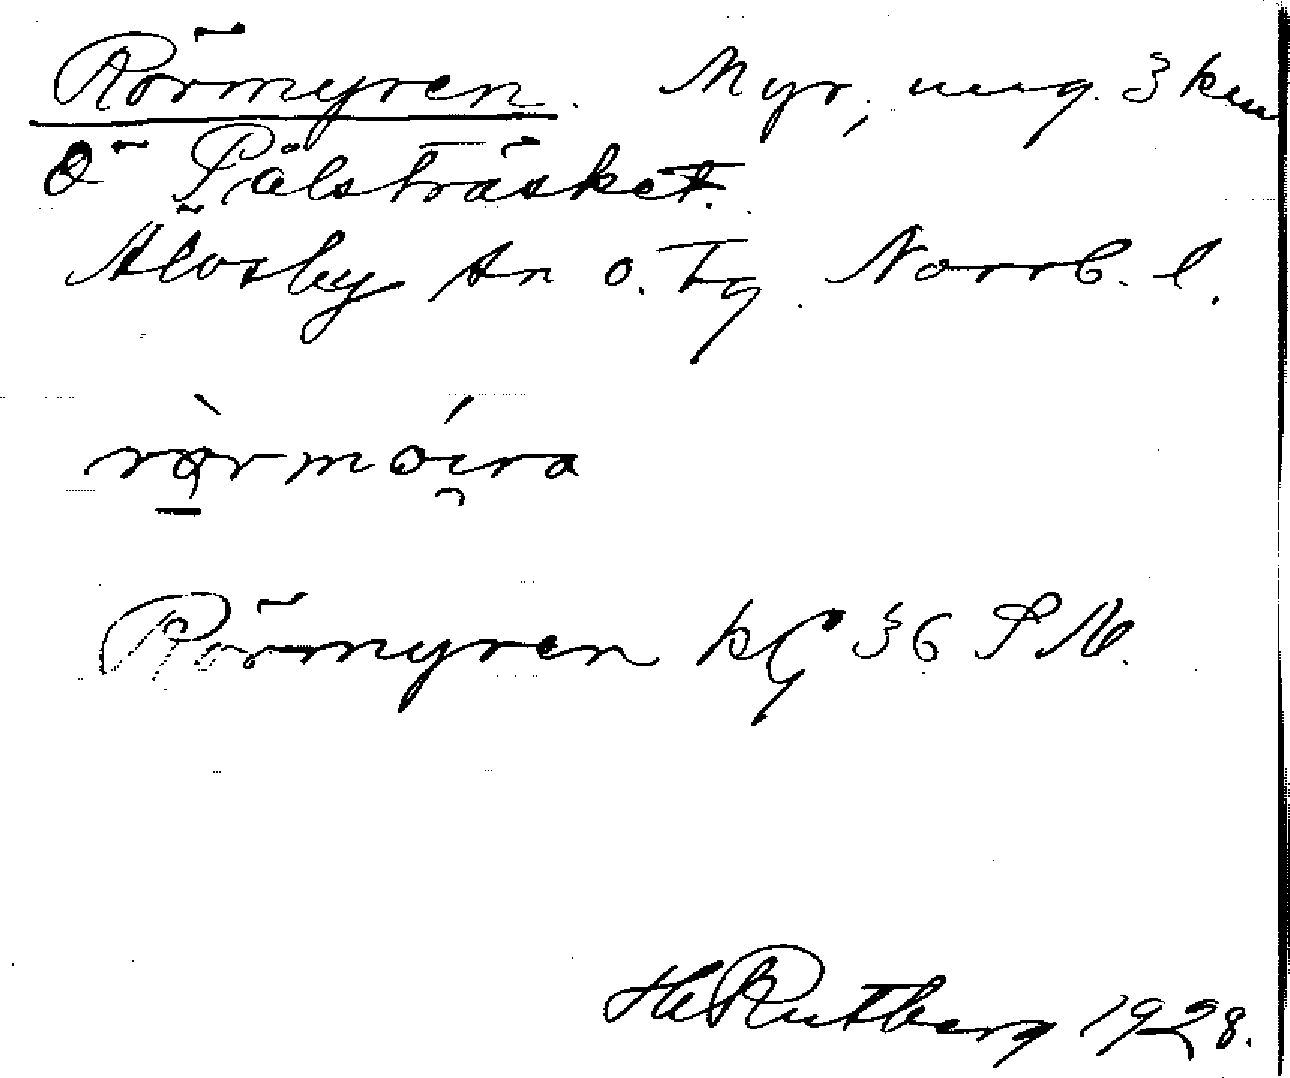 Rörmyren. Myr, ung. 3 km
Ö Pålsträsket.
Älvsby sn o. tg. Norrb. l.
Rörmyren kG 36 S M.
H Rutberg 1928.